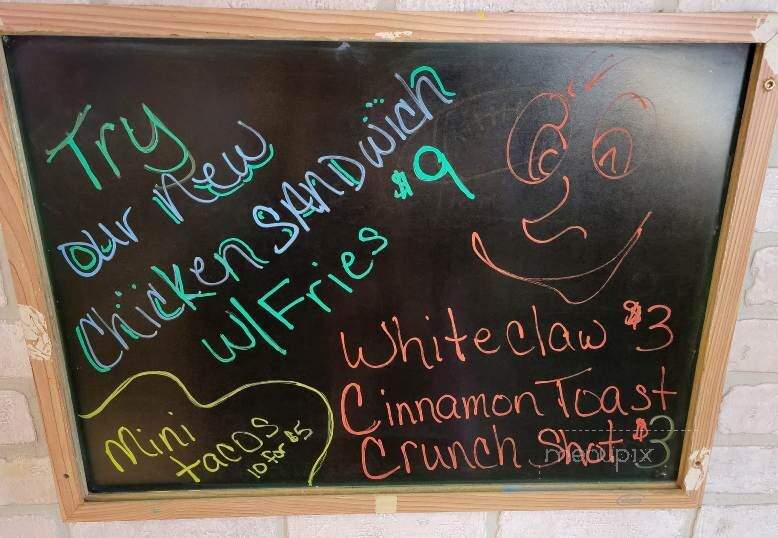 Try
our new
Chicken SANDwich
w/Fries $9
Whiteclaw $3
Cinnamon Toast
Crunch Shot $3
Mini
tacos
10 for $5
menupix